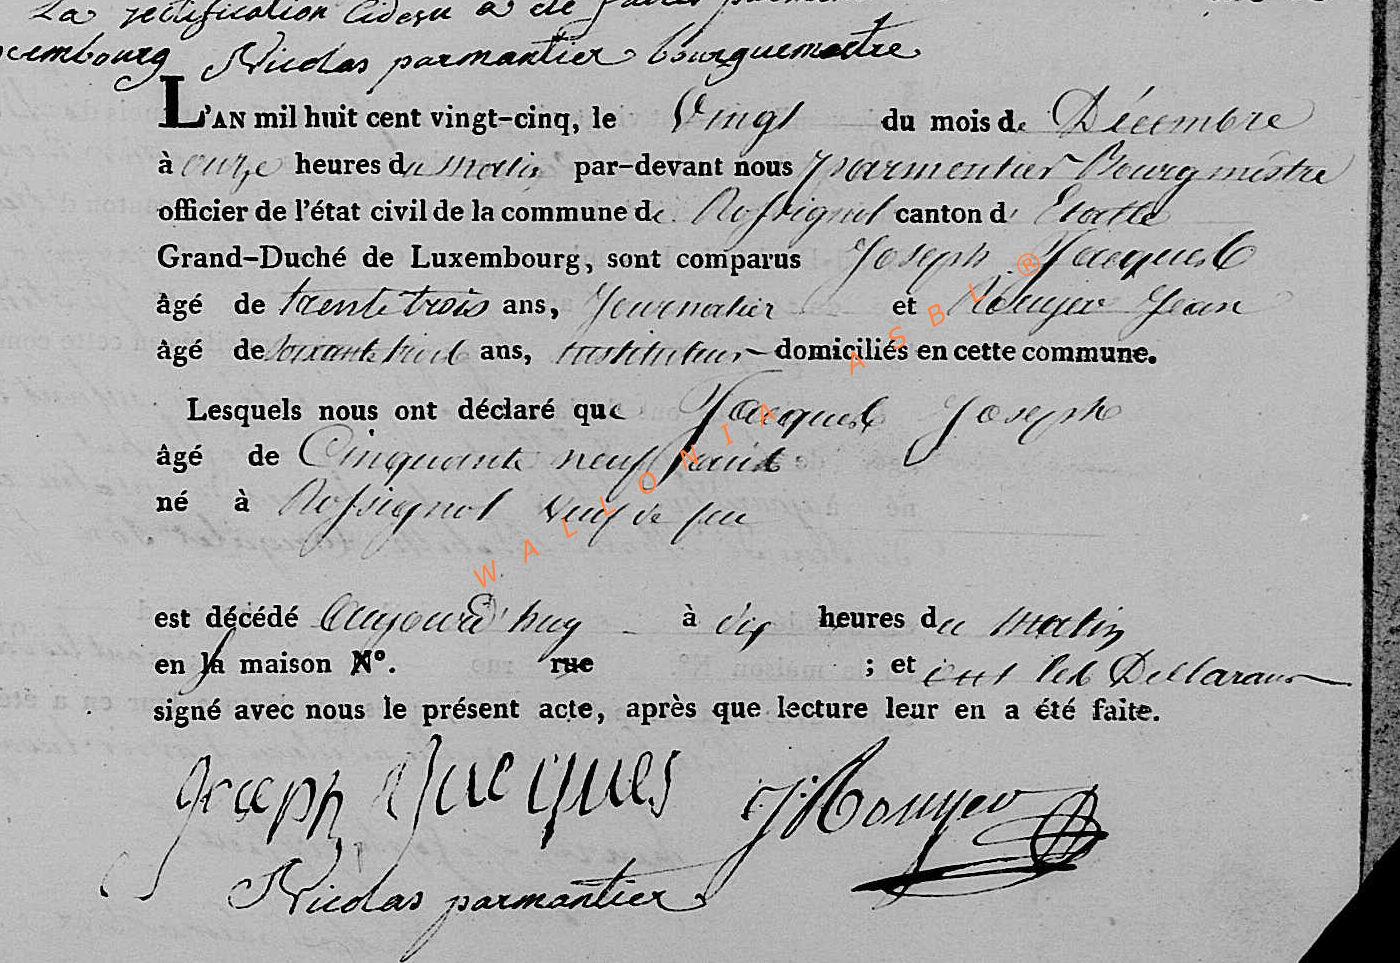 La rectification cidesu a été
Nicolas parmantier bourguemestre
L'AN mil huit cent vingt-cinq, le Vingt du mois de Décembre
à onze heures du matin par-devant nous parmentier Bourgmestre
officier de l'état civil de la commune de Rossignol canton d' Etalle
Grand-Duché de Luxembourg, sont comparus Joseph Jacques
âgé de trente trois ans, Journalier et Rouyer Jean
âgé de soixante huit ans, instituteur domiciliés en cette commune.
Lesquels nous ont déclaré que Jacques Joseph
âgé de Cinquante neuf
né à Rossignol veuf de feu
est décédé Aujourd'huy à dix heures du matin
en sa maison N°. rue ; et ont les Declarans
signé avec nous le présent acte, après que lecture leur en a été faite.
Joseph Jacques J. Rouyer
Nicolas parmantier
WALLONIA ASBL ®